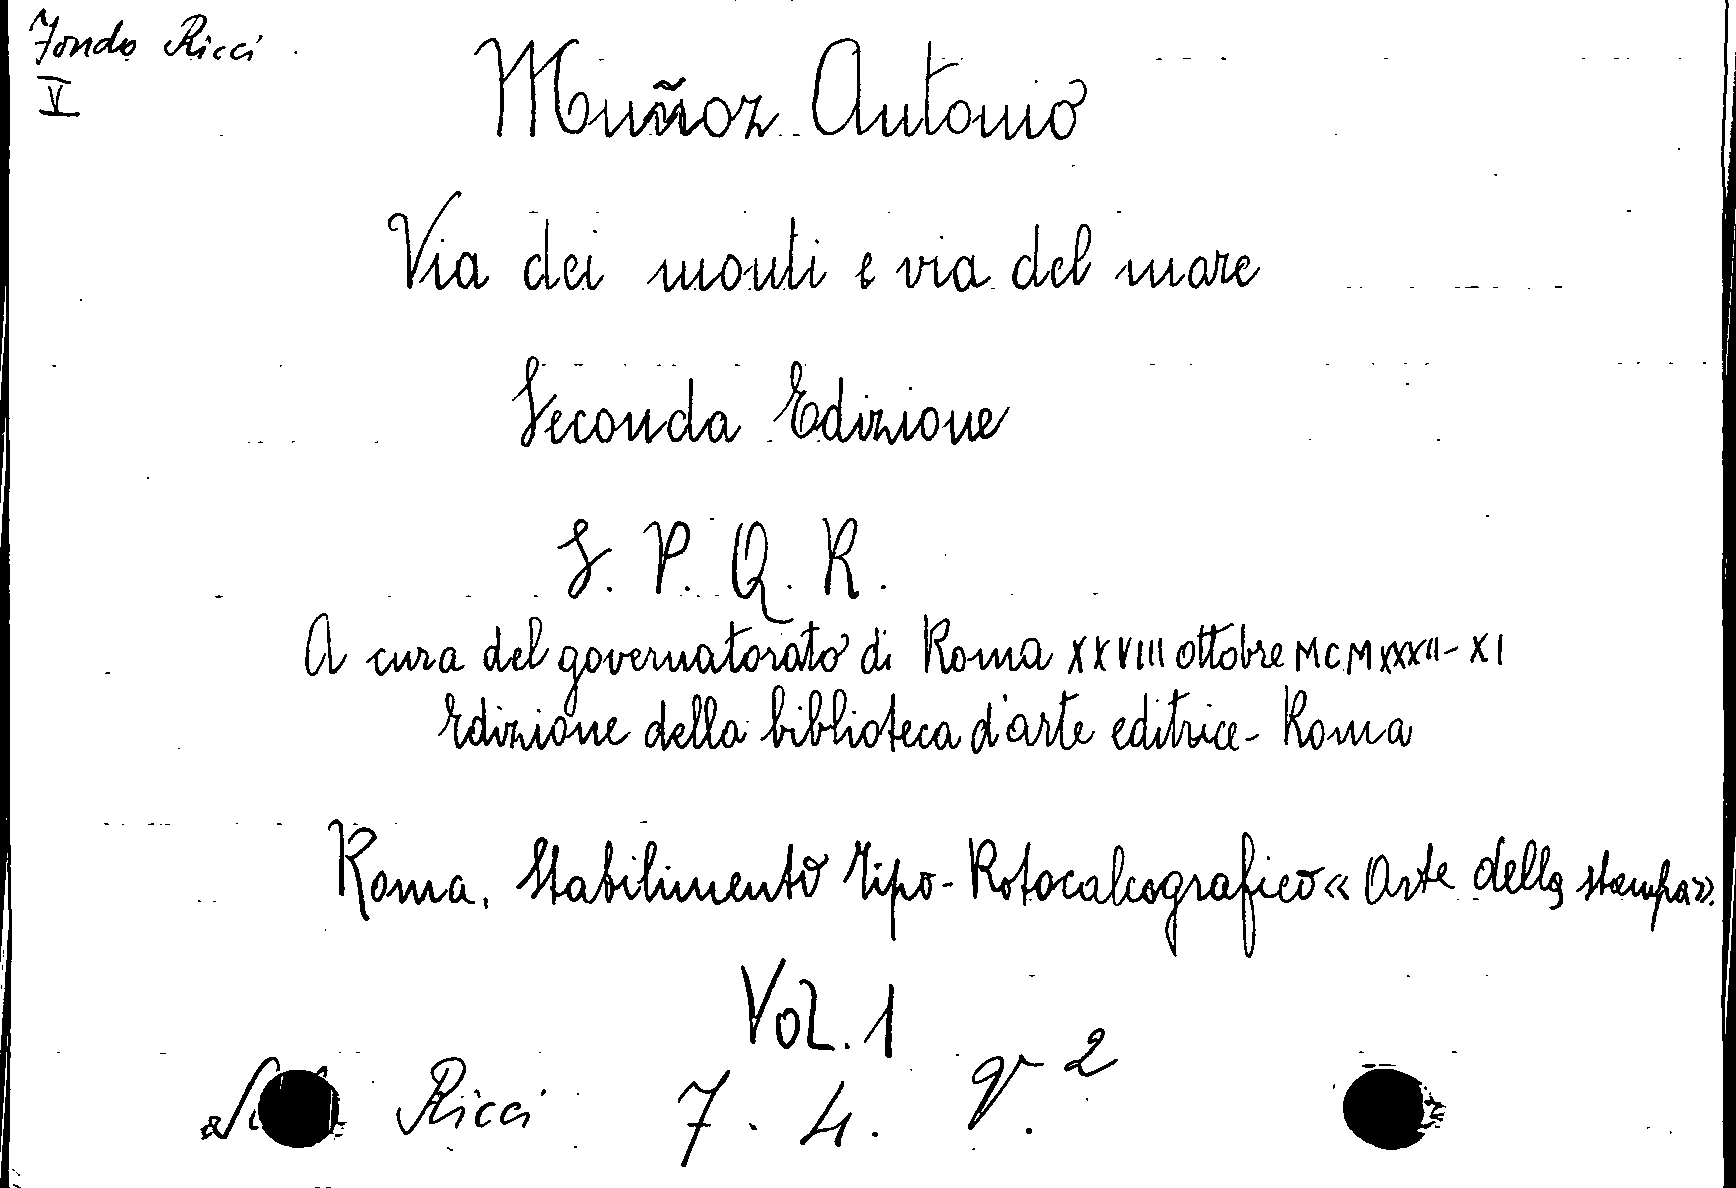 Fondo Ricci
V
Muñoz Antonio
Via dei monti e via del mare
Seconda Edizione
S. P. Q. R.
A cura del governatorato di Roma XXVIII ottobre MCMXXXII-XI
Edizione della biblioteca d'arte editrice - Roma
Roma, Stabilimento Tipo-Rotocalcografico « Arte della stampa».
Vol. 1
Ricci 7. 4. q. 2